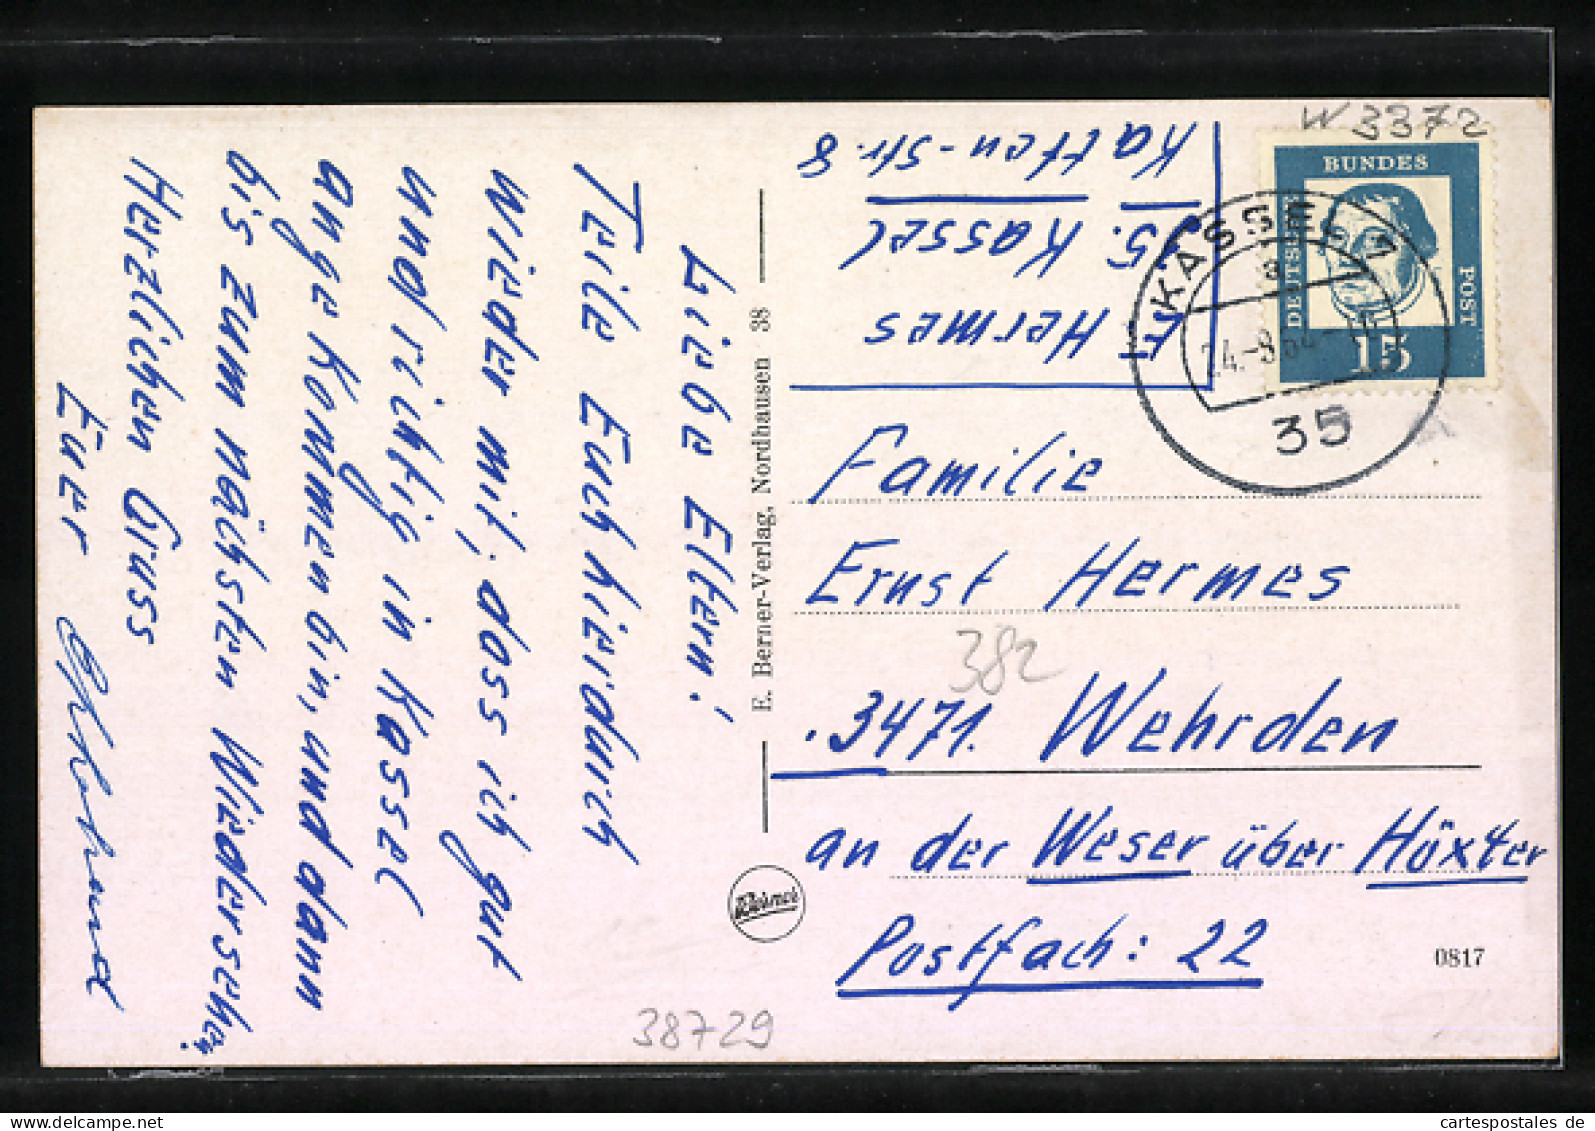 Liebe Eltern!
Teile Euch hierdurch
wieder mit, dass ich gut
und richtig in Kassel
angekommen bin, und dann
bis zum nächsten Wiedersehen.
Herzlichen Gruss
Euer
E. Berner-Verlag, Nordhausen 38
Berner
Hermes
35. Kassel
Katten-Str. 8
W 3372
BUNDES
DEUTSCHE
POST
15
KASSEL 7
a
24.-8.64
35
Familie
Ernst Hermes
382
3471. Wehrden
an der Weser über Höxter
Postfach: 22
0817
38729
cartespostales de